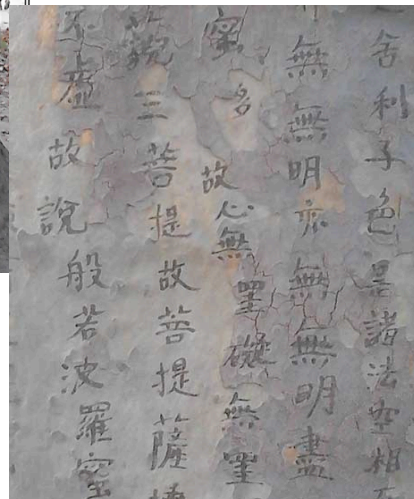 舍利子色是諸法空相
無無明亦無無明盡
蜜多故心無罣礙無罣
藐三菩提故菩提薩埵
不虛故說般若波羅蜜